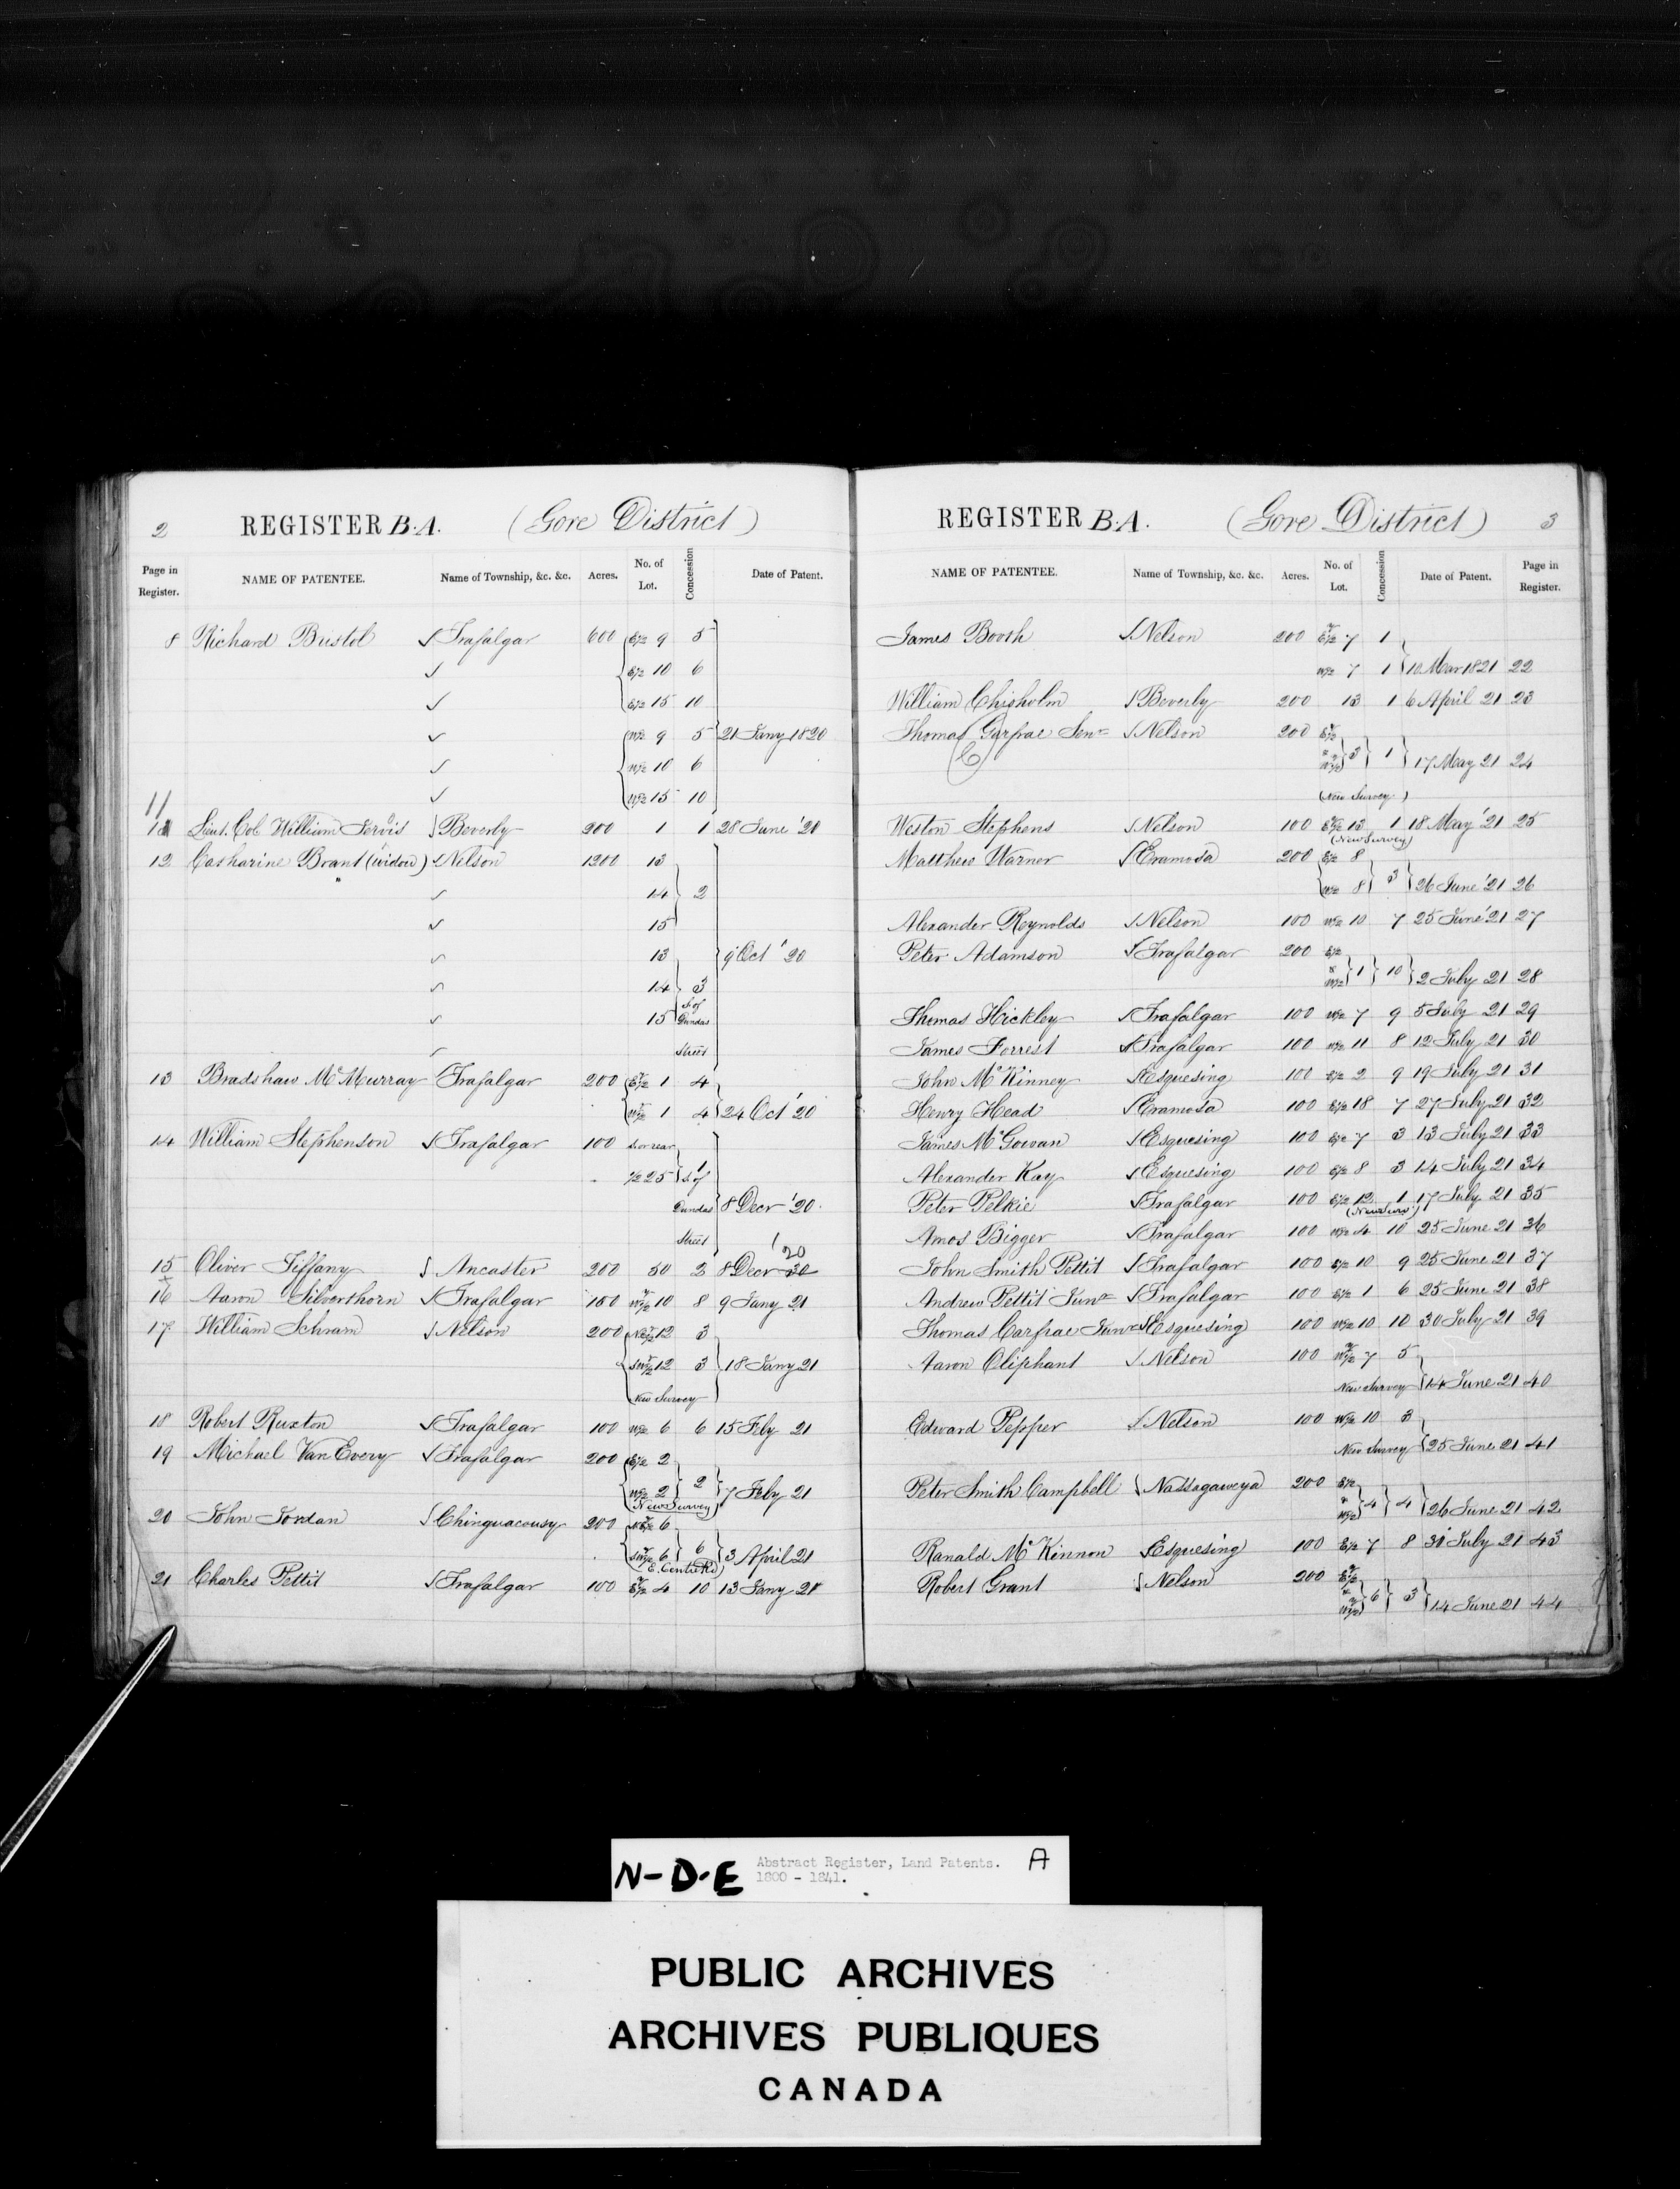 2 REGISTER B.A. (Gore District)
Page in Register. NAME OF PATENTEE. Name of Township, &c. &c. Acres. No. of Lot. Concession Date of Patent.
8 Richard Bristol √ Trafalgar 600 E½ 9 5
√ E½ 10 6
√ E½ 15 10
√ W½ 9 5 21 Jany 1820
√ W½ 10 6
√ W½ 15 10
11
Lieut. Col. William Jervis Beverly 200 1 1 28 June '20
12 Catharine Brant (widow) √ Nelson 1200 13
√ 14 2
√ 15
√ 13 9 Oct '20
√ 14 3
√ 15 S. of Dundas
√ Street
13 Bradshaw McMurray √ Trafalgar 200 E½ 1 4
W½ 1 4 24 Oct '20
14 William Stephenson √ Trafalgar 100 S. or rear
½ 25 1 S. of
Dundas 8 Decr '20
Street
20
15 Oliver Tiffany √ Ancaster 200 50 2 8 Decr 30
16 Aaron Silverthorn √ Trafalgar 100 W½ 10 8 9 Jany 21
17 William Schram √ Nelson 200 NE½ 12 3
SW½ 12 3 18 Jany 21
New Survey
18 Robert Ruxton √ Trafalgar 100 W½ 6 6 15 Feby 21
19 Michael Van Every √ Trafalgar 200 E½ 2
W½ 2 2 7 Feby 21
(New Survey)
20 John Jordan √ Chinguacousy 200 NE½ 6
SW½ 6 6 3 April 21
(E. Centre Rd)
21 Charles Pettit √ Trafalgar 100 E½ 4 10 13 Jany 21
REGISTER B.A. (Gore District) 3
NAME OF PATENTEE. Name of Township, &c. &c. Acres. No. of Lot. Concession Date of Patent. Page in Register.
James Booth √ Nelson 200 E½ 7 1
W½ 7 1 10 Mar 1821 22
William Chisholm √ Beverly 200 13 1 6 April 21 23
Thomas Garfrae Senr √ Nelson 200 E½
(C) & W½ 3 1 17 May 21 24
(New Survey)
Weston Stephens √ Nelson 100 E½ 13 1 18 May '21 25
(New Survey)
Matthew Warner √ Eramosa 200 E½ 8
W½ 8 3 26 June '21 26
Alexander Reynolds √ Nelson 100 W½ 10 7 25 June '21 27
Peter Adamson √ Trafalgar 200 E½
& W½ 1 10 2 July 21 28
Thomas Hickley √ Trafalgar 100 W½ 7 9 5 July 21 29
James Forrest √ Trafalgar 100 W½ 11 8 12 July 21 30
John McKinney √ Esquesing 100 E½ 2 9 19 July 21 31
Henry Head √ Eramosa 100 E½ 18 7 27 July 21 32
James McGowan √ Esquesing 100 E½ 7 3 13 July 21 33
Alexander Kay √ Esquesing 100 E½ 8 3 14 July 21 34
Peter Pelkie √ Trafalgar 100 E½ 12 1 17 July 21 35
(New Surv.)
Amos Bigger √ Trafalgar 100 W½ 4 10 25 June 21 36
John Smith Pettit √ Trafalgar 100 E½ 10 9 25 June 21 37
Andrew Pettit Junr √ Trafalgar 100 E½ 1 6 25 June 21 38
Thomas Carfrae Junr √ Esquesing 100 W½ 10 10 30 July 21 39
Aaron Oliphant √ Nelson 100 W½ 7 5
New Survey 14 June 21 40
Edward Pepper √ Nelson 100 W½ 10 3
New Survey 25 June 21 41
Peter Smith Campbell √ Nassagaweya 200 E½
& W½ 4 4 26 June 21 42
Ranald McKinnon √ Esquesing 100 E½ 7 8 30 July 21 43
Robert Grant √ Nelson 200 E½
& W½ 6 3 14 June 21 44
N-D-E Abstract Register, Land Patents. A
1800 - 1841.
PUBLIC ARCHIVES
ARCHIVES PUBLIQUES
CANADA